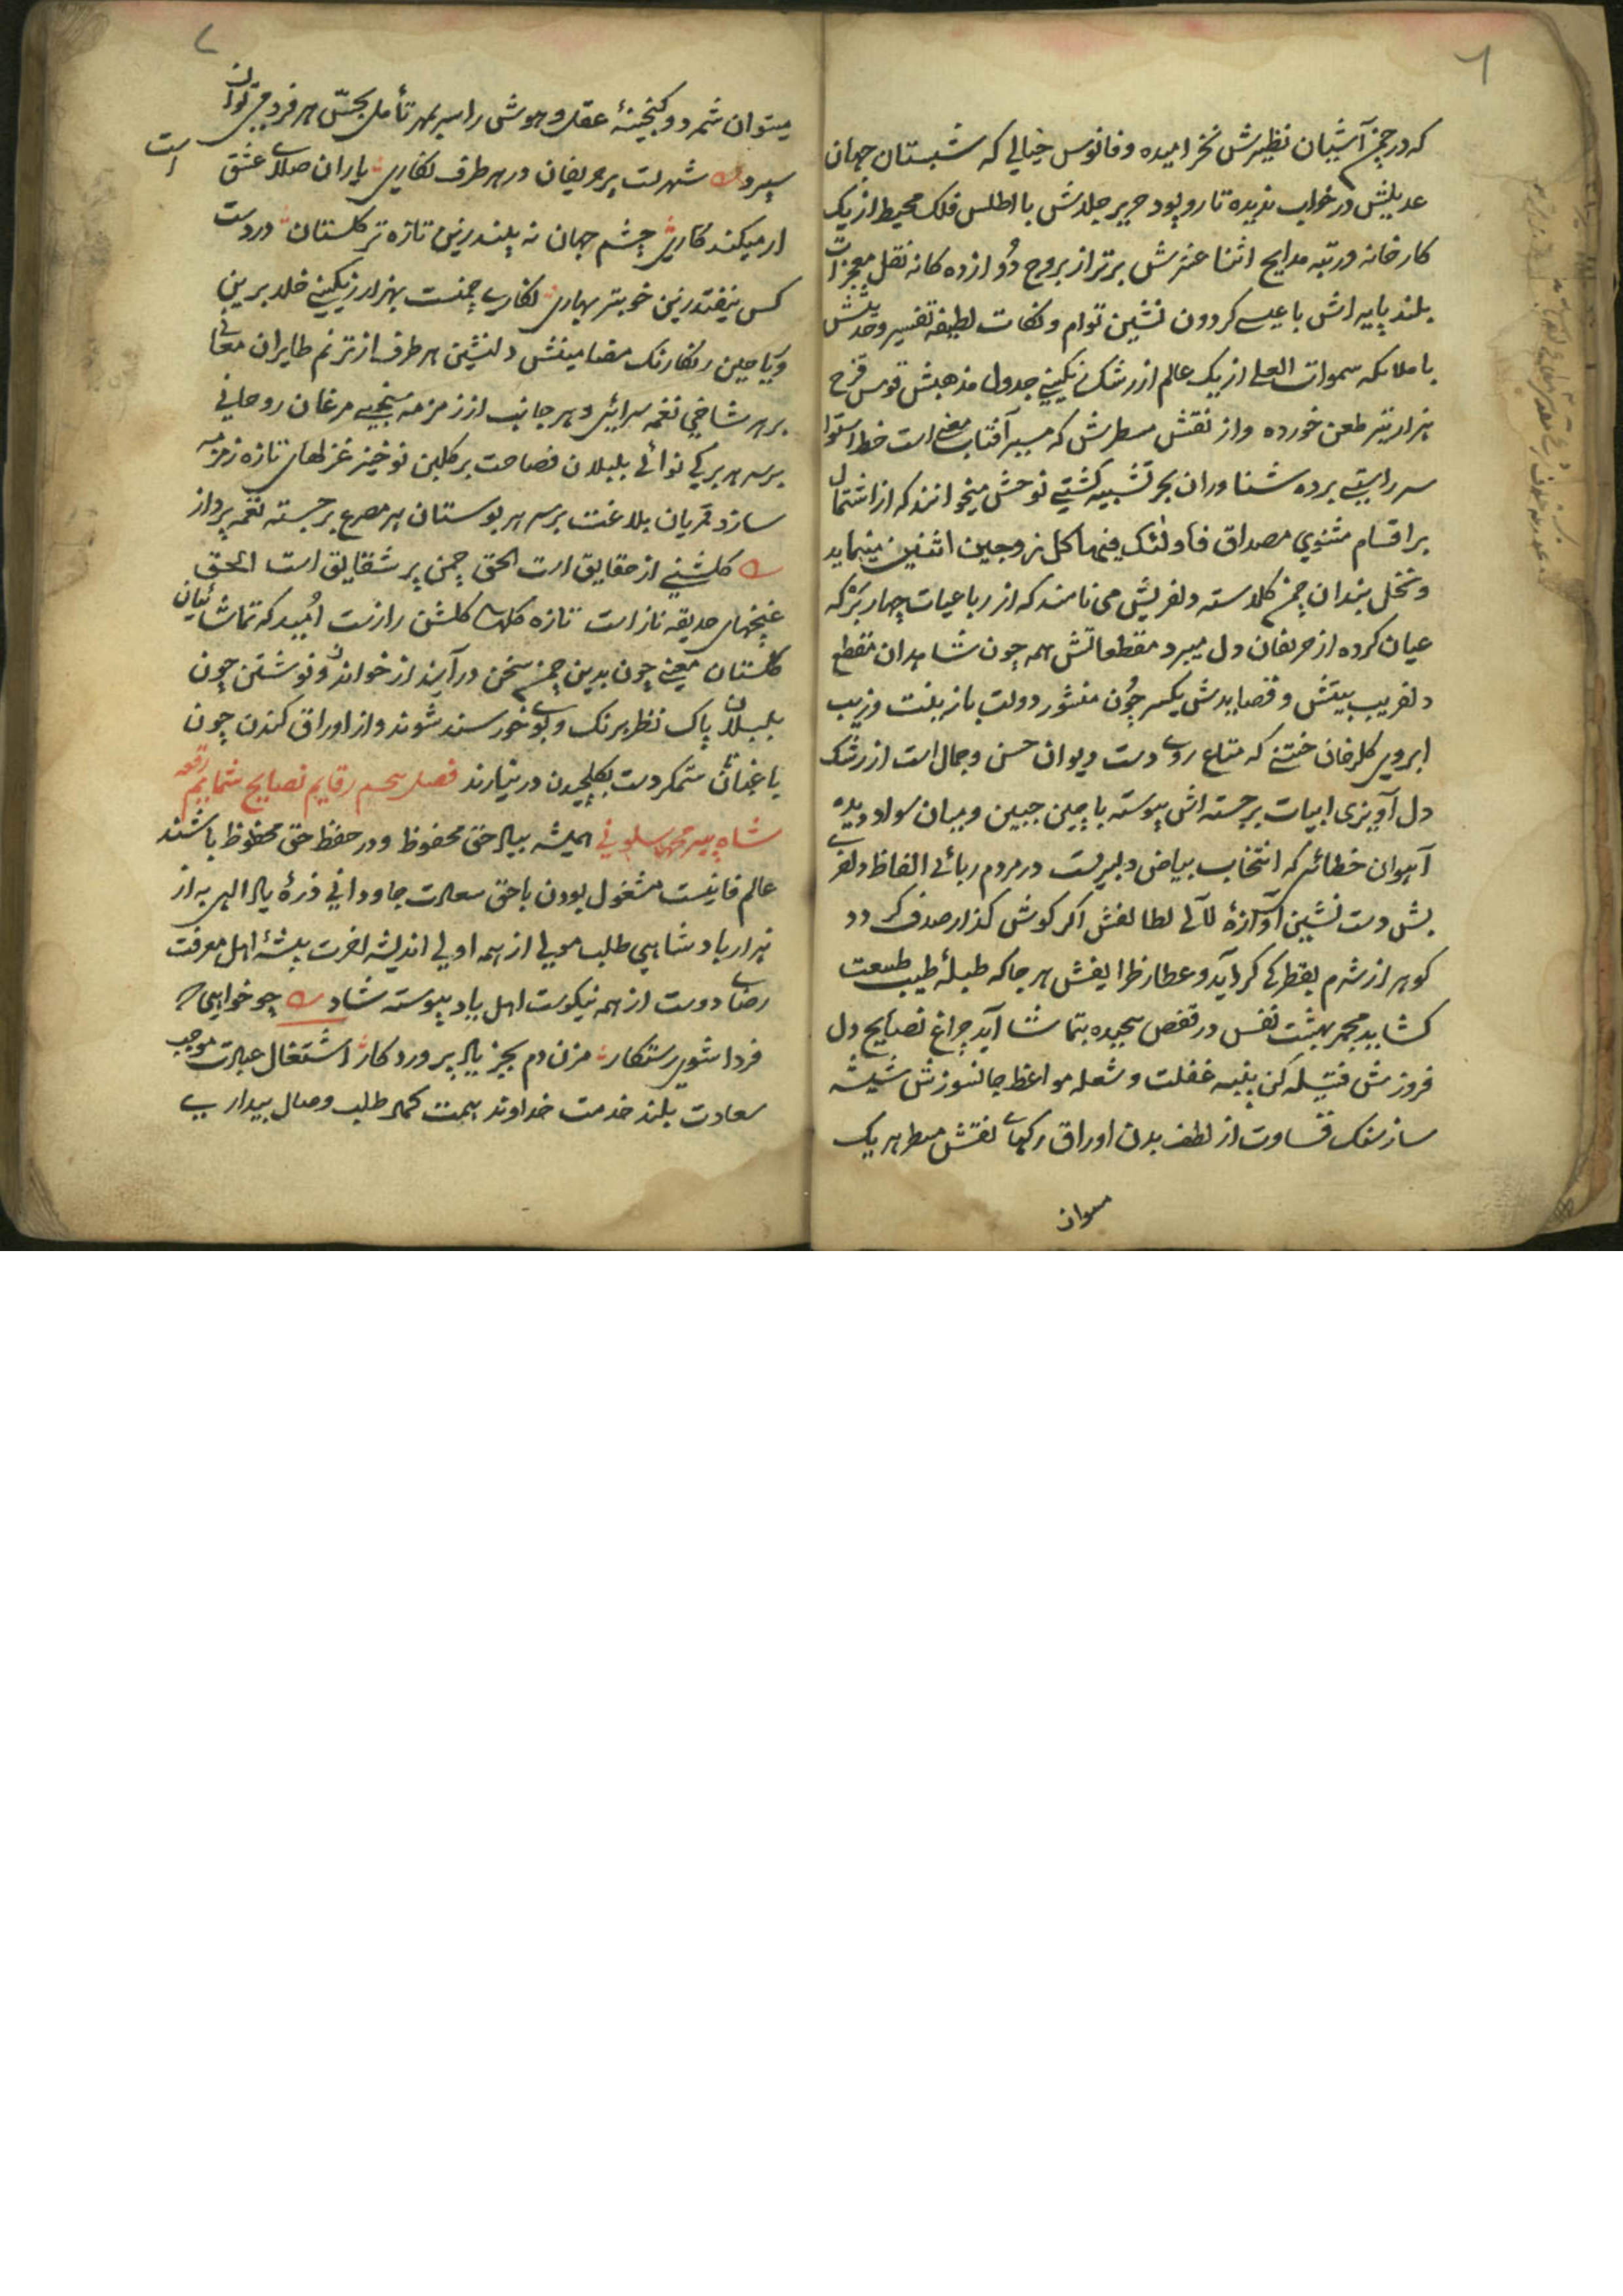 ٦
که در چمن آشیان نظیرش نخرامیده و فانوس خیالی که شبستان جهان
عدیلش در خواب ندیده تار و پود حریر جلدش با اطلس فلک محیط از یک
کارخانه و رتبه مدایح اثنا عشرش برتر از بروج دوازده کانه نقل معجزات
بلند پایه اش با عیسی کردون نشین توام و نکات لطیفه تفسیر و حدیثش
با ملایکه سموات العلی از یک عالم از رشک رنکینی جدول مذهبش قوس قزح
هزار تیر طعن خورده و از نقش مسطرش که مسیر آفتاب معنی است خط استوا
سر راستی برده شناوران بحر تشبیه کشتی نوحش میخوانند که از اشتمال
بر اقسام مثنوی مصداق فاولئک فیها کل زوجین اثنین مینماید
و نخل بندان چمن کلدسته دلفریبش می نامند که از رباعیات چهار برکه
عیان کرده از حریفان دل میبرد مقطعاتش همه چون شاهدان مقطع
دلفریب بیتش و قصایدش یکسر چون منشور دولت بازینت و زیب
ابروی کلرخان ختنی که متاع روی دست دیوان حسن و جمال است از رشک
دل آویزی ابیات برجسته اش پیوسته با چین جبین و بیان سواد دیده
آهوان خطائی که انتخاب بیاض دلبریست در مردم ربائی الفاظ دلفریـ
بش دست نشین آوازهٔ لآلی لطائفش اکر کوش کذار صدف کردد
کوهر از شرم بقطرکی کراید و عطار ظرایفش هر جا که طبلهٔ طیب طبیعت
کشاید مجمر بهشت نفس در قفص پیچیده بتماشا آید چراغ نصایح دل
فروزش فتیله کن پنبه غفلت و شعله مواعظ جانسوزش شیشه
ساز سنک قساوت از لطف بدن اوراق رکهای نقش مسطر هر یک
میتوان
٧
میتوان شمرد و کنجینهٔ عقل و هوش را سربمهر تأمل بجنس هر فردی توان
سپرد شهریست پر حریفان در هر طرف نکاری یاران صلای عشق است
ار میکنند کاری چشم جهان نه بیند زین تازه تر کلستان در دست
کس نیفتد زین خوبتر بهاری نکاری چمنست بهزار رنکینی خلد برین
و یاحین رنکارنک مضامینش دلنشین هر طرف از ترنم طایران معانی
بر هر شاخی نغمه سرائی و هر جانب از زمزمه سنجی مرغان روحانی
بر سر هر برکی نوائی بلبلان فصاحت بر کلبن نوخیز غزلهای تازه زمزمه
ساز و قمریان بلاغت بر سر هر بوستان هر مصرع برجسته نغمه پرداز
کلشنی از حقایق است الحق چمن پر شقایق است الحق
غنچهای حدیقه ناز است تازه کلهای کلشن راز است امید که تماشائیان
کلستان معنی چون بدین چمن سخن در آیند از خواندن و نوشتن چون
بلبلان پاک نظر برنک و بوی خورسند شوند و از اوراق کندن چون
باغبانان ستمکر دست بکلچیدن در نیارند فصل سیم رقایم نصایح شمایم رقعه
شاه پیر محمد سلونی همیشه بیاد حق محفوظ و در حفظ حق محظوظ باشند
عالم فانیست مشغول بودن با حق سعادت جاودانی ذرهٔ یاد الهی به از
هزار بادشاهی طلب مولی از همه اولی اندیشه اخرت پیشهٔ اهل معرفت
رضای دوست از همه نیکوست اهل یاد پیوسته شاد چو خواهی که
فردا شوی رستکار مزن دم بجز یاد پروردکار اشتغال عبادت موجب
سعادت بلند خدمت خداوند بهمت کمال طلب وصال بیداری